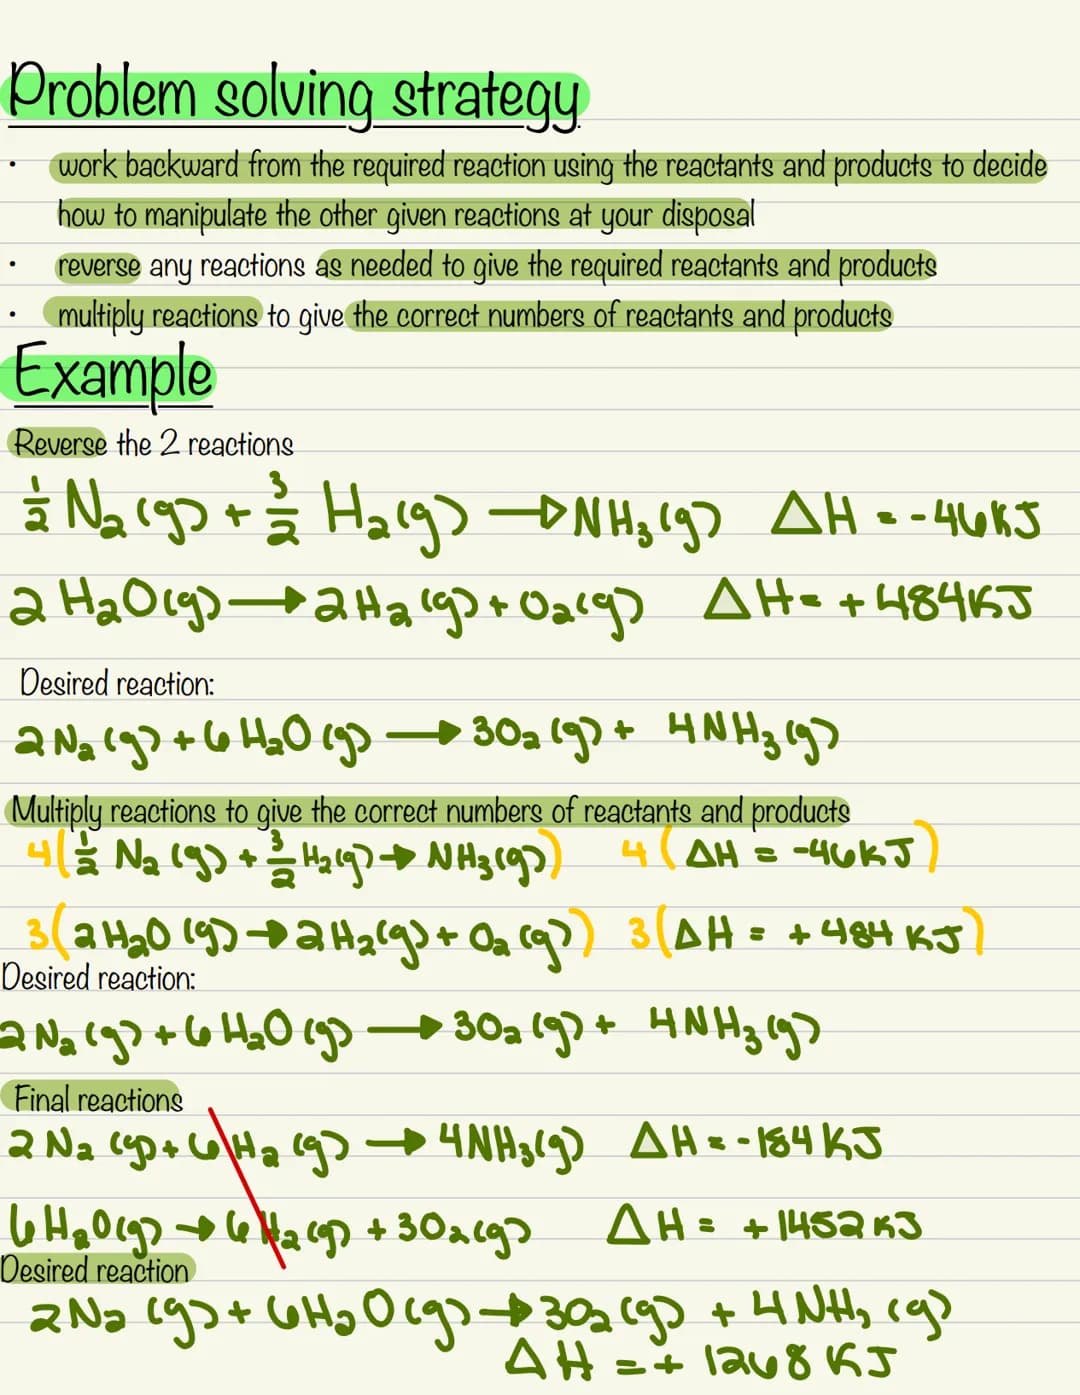 Problem solving strategy
• work backward from the required reaction using the reactants and products to decide
how to manipulate the other given reactions at your disposal
• reverse any reactions as needed to give the required reactants and products
• multiply reactions to give the correct numbers of reactants and products
Example
Reverse the 2 reactions
½ N₂ (g) + 3/2 H₂ (g) → NH₃ (g) ΔH = -46KJ
2 H₂O (g) → 2 H₂ (g) + O₂ (g) ΔH = + 484KJ
Desired reaction:
2 N₂ (g) + 6 H₂O (g) → 3O₂ (g) + 4NH₃ (g)
Multiply reactions to give the correct numbers of reactants and products
4(½ N₂ (g) + 3/2 H₂ (g) → NH₃ (g)) 4(ΔH = -46KJ)
3(2 H₂O (g) → 2 H₂ (g) + O₂ (g)) 3(ΔH = + 484 KJ)
Desired reaction:
2 N₂ (g) + 6 H₂O (g) → 3O₂ (g) + 4NH₃ (g)
Final reactions
2 N₂ (g) + 6 H₂ (g) → 4NH₃ (g) ΔH = -184 KJ
6 H₂O (g) → 6 H₂ (g) + 3O₂ (g) ΔH = + 1452 KJ
Desired reaction
2N₂ (g) + 6H₂O (g) → 3O₂ (g) + 4 NH₃ (g)
ΔH = + 1268 KJ